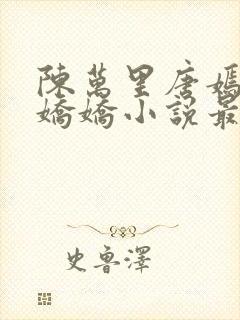 陳萬里唐嫣
嬌嬌小說最
史魯澤